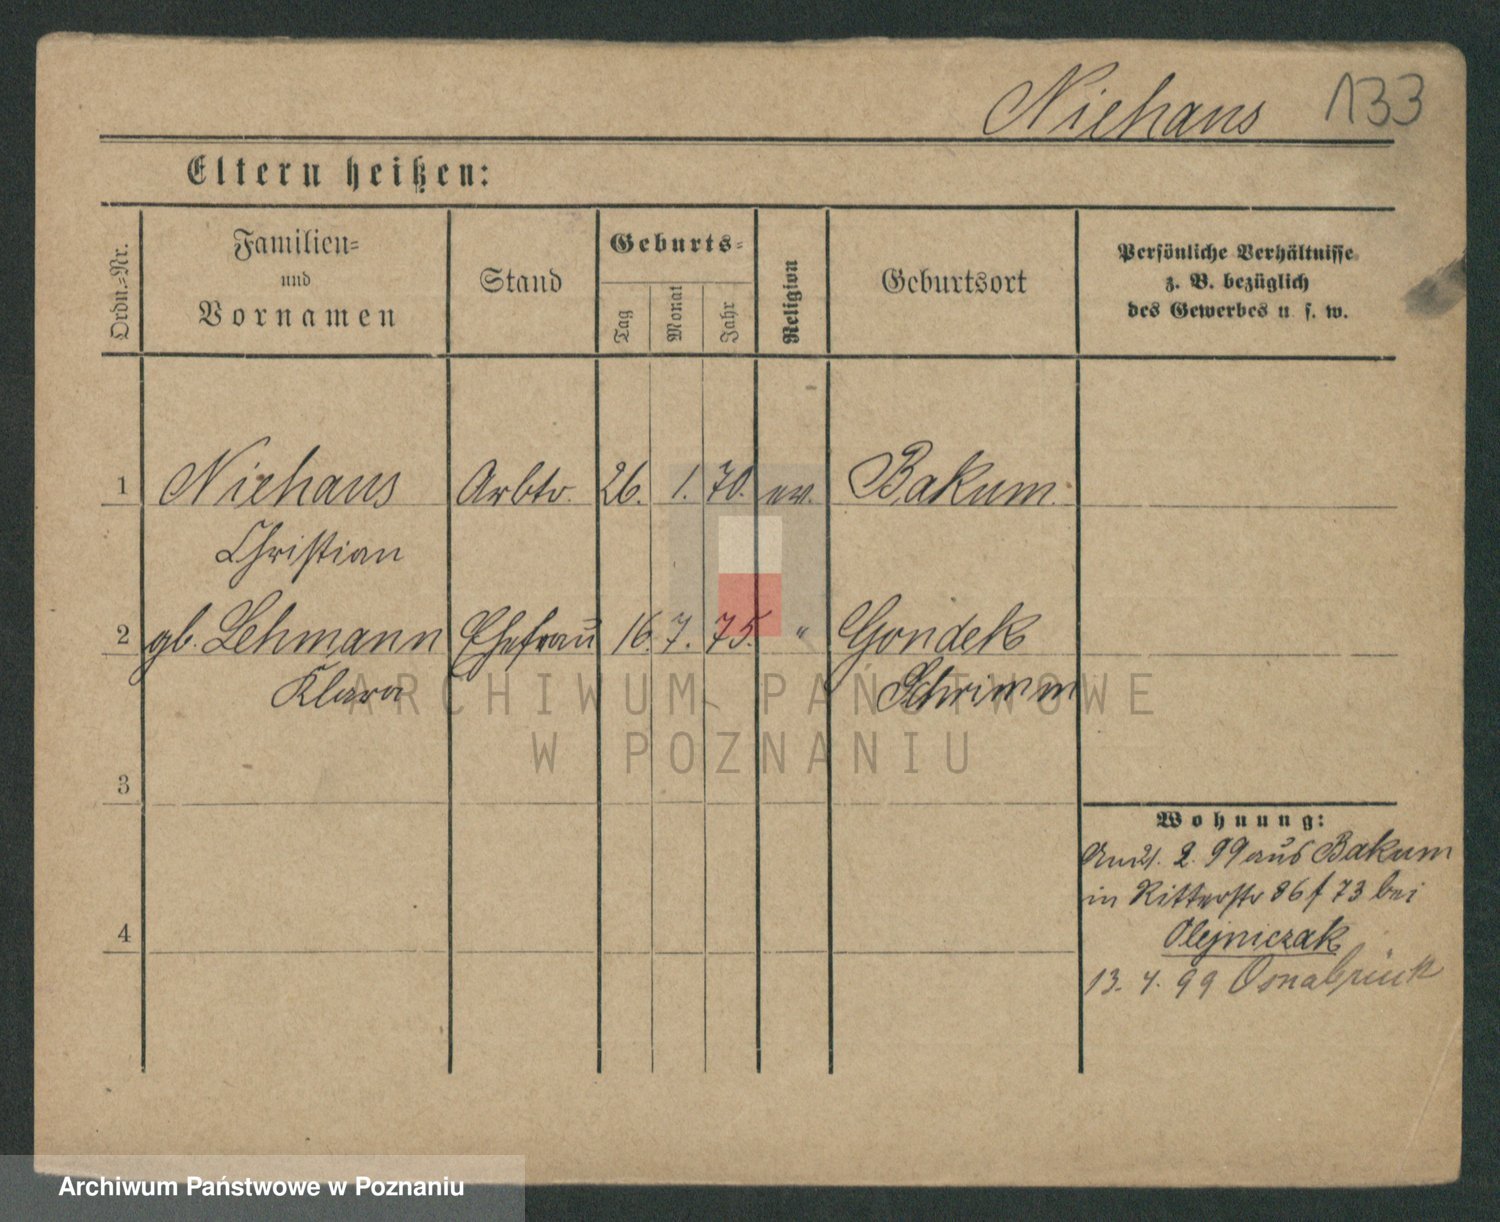 Niehaus 133
Eltern heißen:
Ordn.=Nr. Familien= und Vornamen Stand Geburts= Tag Monat Jahr Religion Geburtsort Persönliche Verhältnisse z. B. bezüglich des Gewerbes u. s. w.
1 Niehaus Arbtr. 26. 1. 70. ev. Bakum
Christian
2 gb. Lehmann Ehefrau 16. 7. 75. " Gondek
Klara Schrimm
ARCHIWUM PAŃSTWOWE
W POZNANIU
3
Wohnung:
2. 99 aus Bakum
in Ritterstr 86 f 73 bei
4
Olejniczak
13. 4. 99 Osnabrück
Archiwum Państwowe w Poznaniu